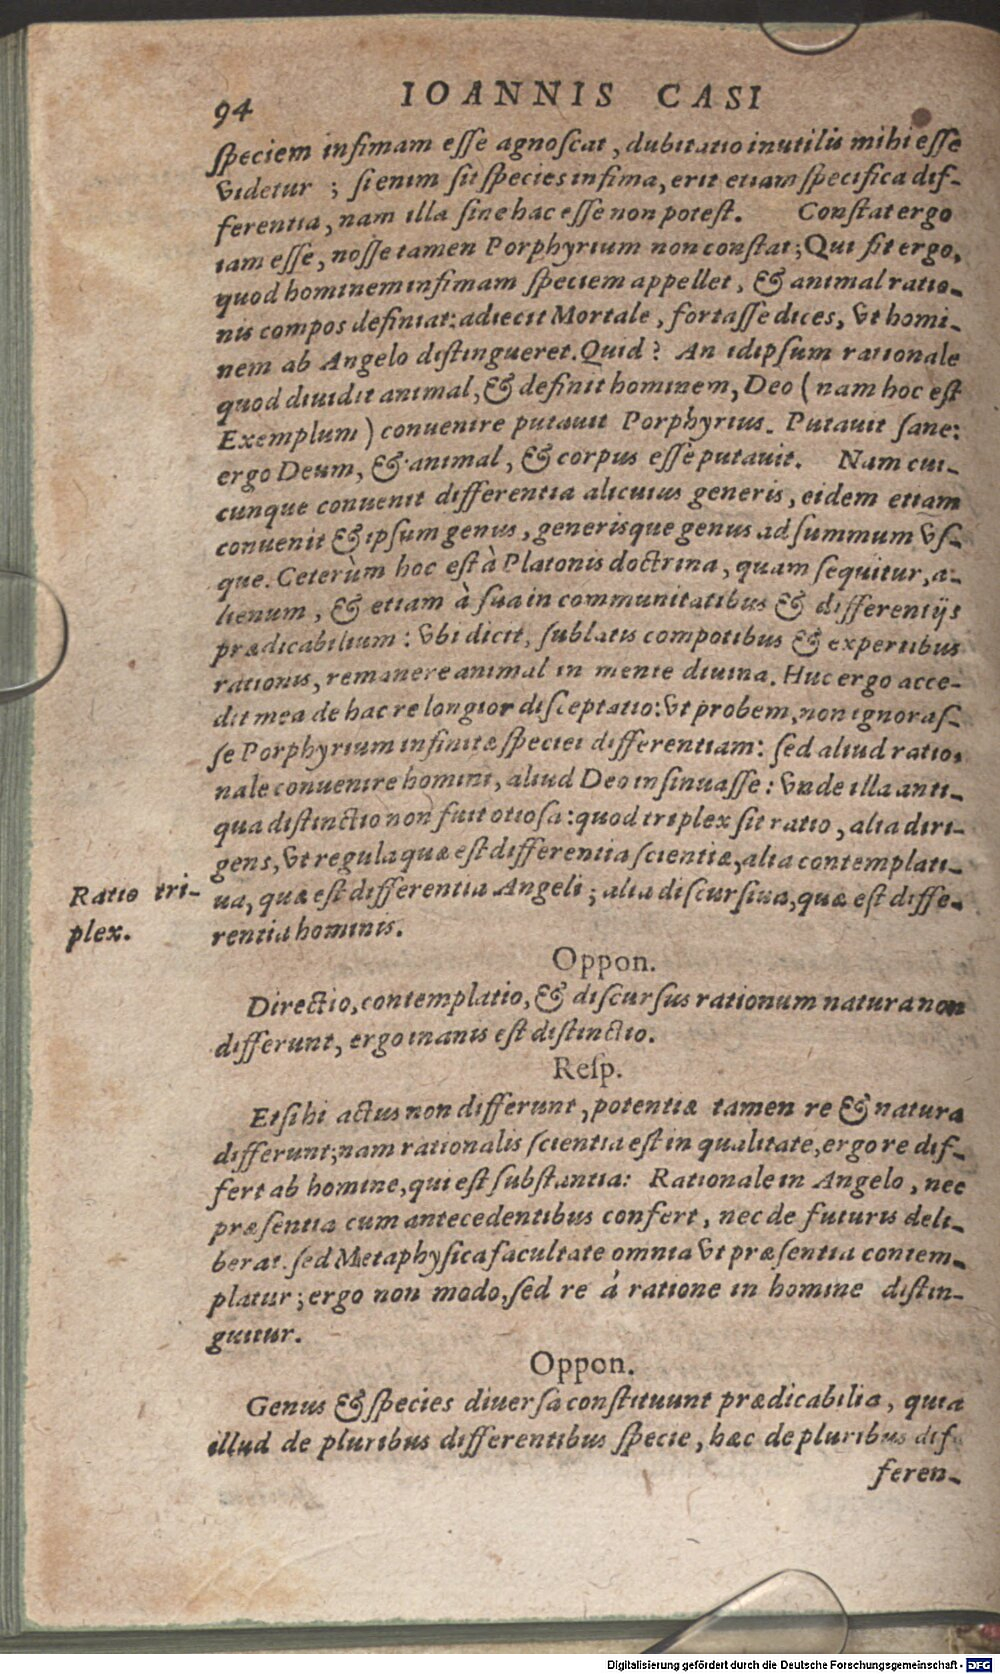 94
IOANNIS CASI
ſpeciem infimam eſſe agnoſcat, dubitatio inutilis mihi eſſe
videtur ; ſi enim ſit ſpecies infima, erit etiam ſpecifica dif-
ferentia, nam illa ſine hac eſſe non poteſt. Conſtat ergo
iam eſſe, noſſe tamen Porphyrium non conſtat; Qui fit ergo,
quod hominem infimam ſpeciem appellet, & animal ratio-
nis compos definiat: adiecit Mortale, fortaſſe dices, vt homi-
nem ab Angelo diſtingueret. Quid? An idipſum rationale
quod diuidit animal, & definit hominem, Deo ( nam hoc eſt
Exemplum ) conuenire putauit Porphyrius. Putauit ſane:
ergo Deum, & animal, & corpus eſſe putauit. Nam cui-
cunque conuenit differentia alicuius generis, eidem etiam
conuenit & ipſum genus, generisque genus ad ſummum vſ-
que. Ceterùm hoc eſt à Platonis doctrina, quam ſequitur, a-
lienum, & etiam à ſua in communitatibus & differentijs
prædicabilium: vbi dicit, ſublatis compotibus & expertibus
rationis, remanere animal in mente diuina. Huc ergo acce-
dit mea de hac re longior diſceptatio: vt probem, non ignoraſ-
ſe Porphyrium infinitæ ſpeciei differentiam: ſed aliud ratio-
nale conuenire homini, aliud Deo inſinuaſſe: vnde illa anti-
qua diſtinctio non fuit otioſa: quod triplex ſit ratio, alia diri-
gens, vt regula quæ eſt differentia ſcientiæ, alia contemplati-
ua, quæ eſt differentia Angeli; alia diſcurſiua, quæ eſt diffe-
rentia hominis.
Ratio tri-
plex.
Oppon.
Directio, contemplatio, & diſcurſus rationum natura non
differunt, ergo inanis eſt diſtinctio.
Reſp.
Etſi hi actus non differunt, potentiæ tamen re & natura
differunt; nam rationalis ſcientia eſt in qualitate, ergo re dif-
fert ab homine, qui eſt ſubſtantia: Rationale in Angelo, nec
præſentia cum antecedentibus confert, nec de futuris deli-
berat. ſed Metaphyſica facultate omnia vt præſentia contem-
platur; ergo non modo, ſed re à ratione in homine diſtin-
guitur.
Oppon.
Genus & ſpecies diuerſa conſtituunt prædicabilia, quia
illud de pluribus differentibus ſpecie, hæc de pluribus dif-
feren-
Digitalisierung gefördert durch die Deutsche Forschungsgemeinschaft - DFG